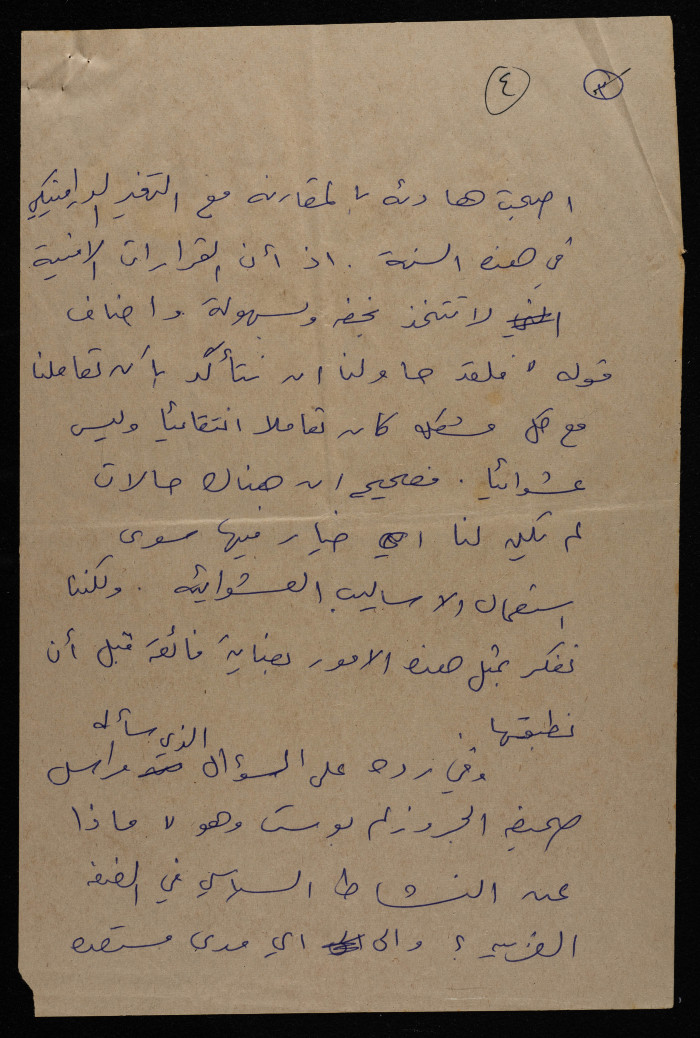 ٤ ٣
اصبحت هادئة بالمقارنه مع التغير الدراميتيكي
في هذه السنة . اذ أن القرارات الامنية
لا تتخذ بخفه وبسهولة واضاف
قوله " فلقد حاولنا ان نتأكد بأن تعاملنا
مع كل مشكله كان تعاملا انتقائيا وليس
عشوائيا . فصحيح ان هناك حالات
لم تكن لنا اي خيار فيها سوى
استعمال الاساليب العشوائيه . ولكننا
نفكر بمثل هذه الامور بعناية فائقة قبل أن
نطبقها
وفي رده على السؤال الذي سأله مراسل
صحيفه الجروزلم بوست وهو " ماذا
عن النشاط السياسي في الضفه
الغربيه ؟ والى اي مدى مستعده